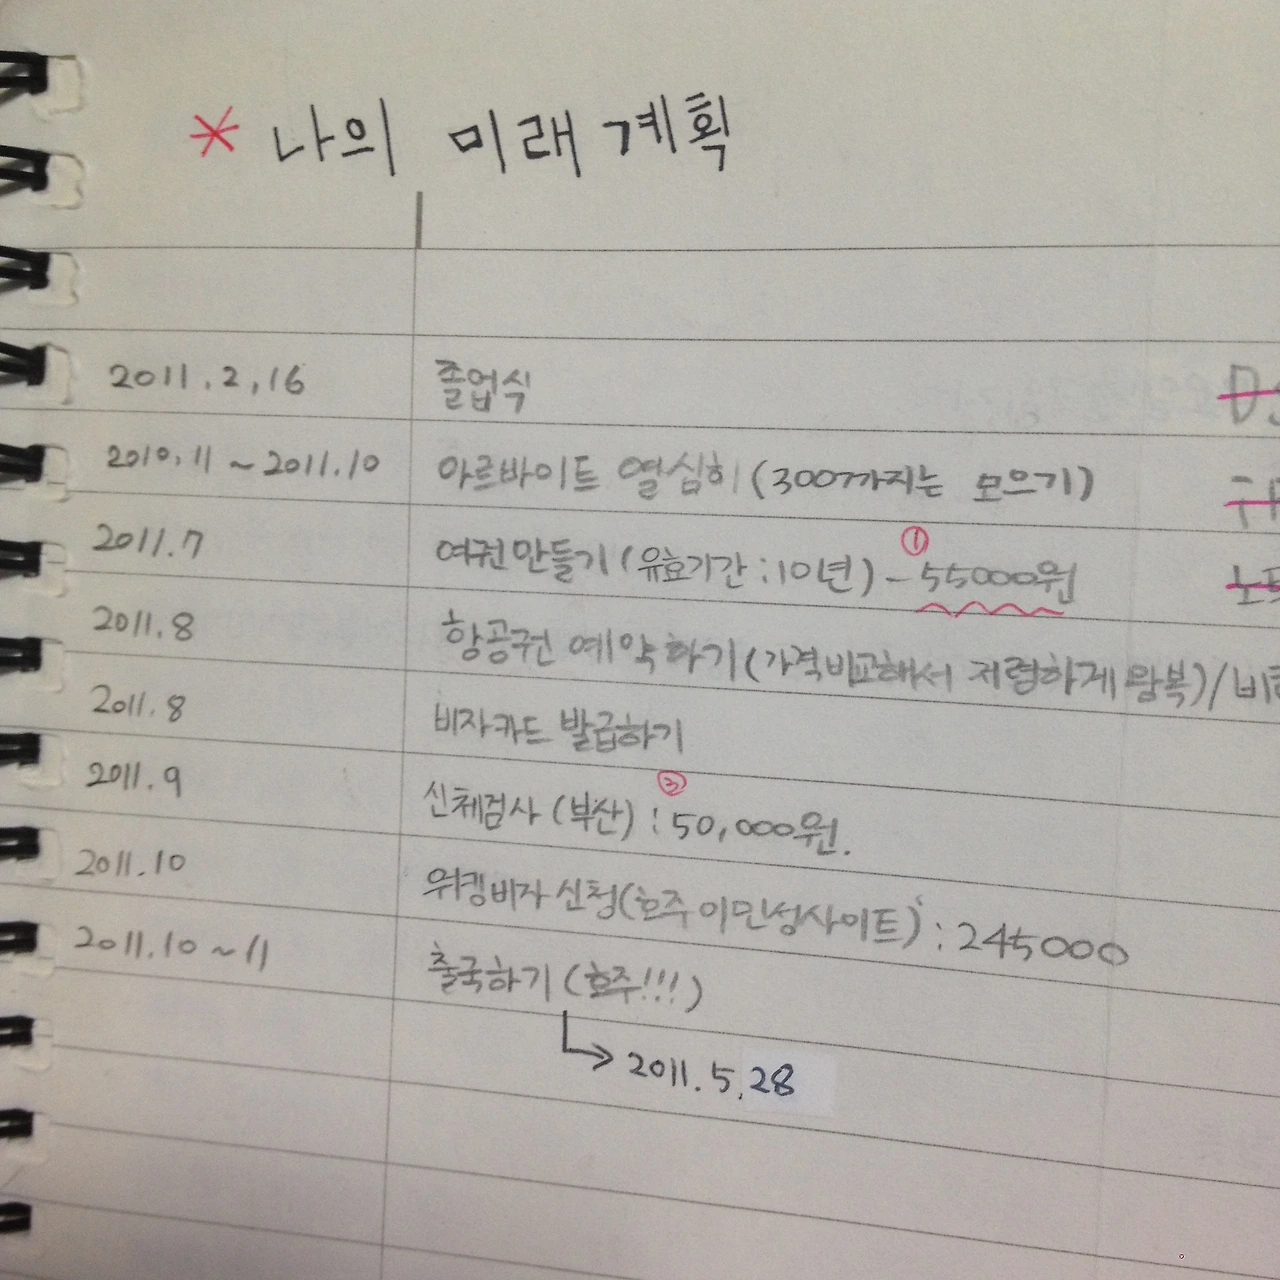 * 나의 미래 계획
2011.2.16 졸업식
2010.11 ~ 2011.10 아르바이트 열심히 (300까지는 모으기)
2011.7 여권만들기 (유효기간 : 10년) - ① 55000원
2011.8 항공권 예약하기 (가격비교해서 저렴하게 왕복) /
2011.8 비자카드 발급하기
2011.9 신체검사 (부산) : ③ 50,000원.
2011.10 워킹비자 신청 (호주 이민성사이트) : 245000
2011.10 ~ 11 출국하기 (호주!!!)
→ 2011.5.28